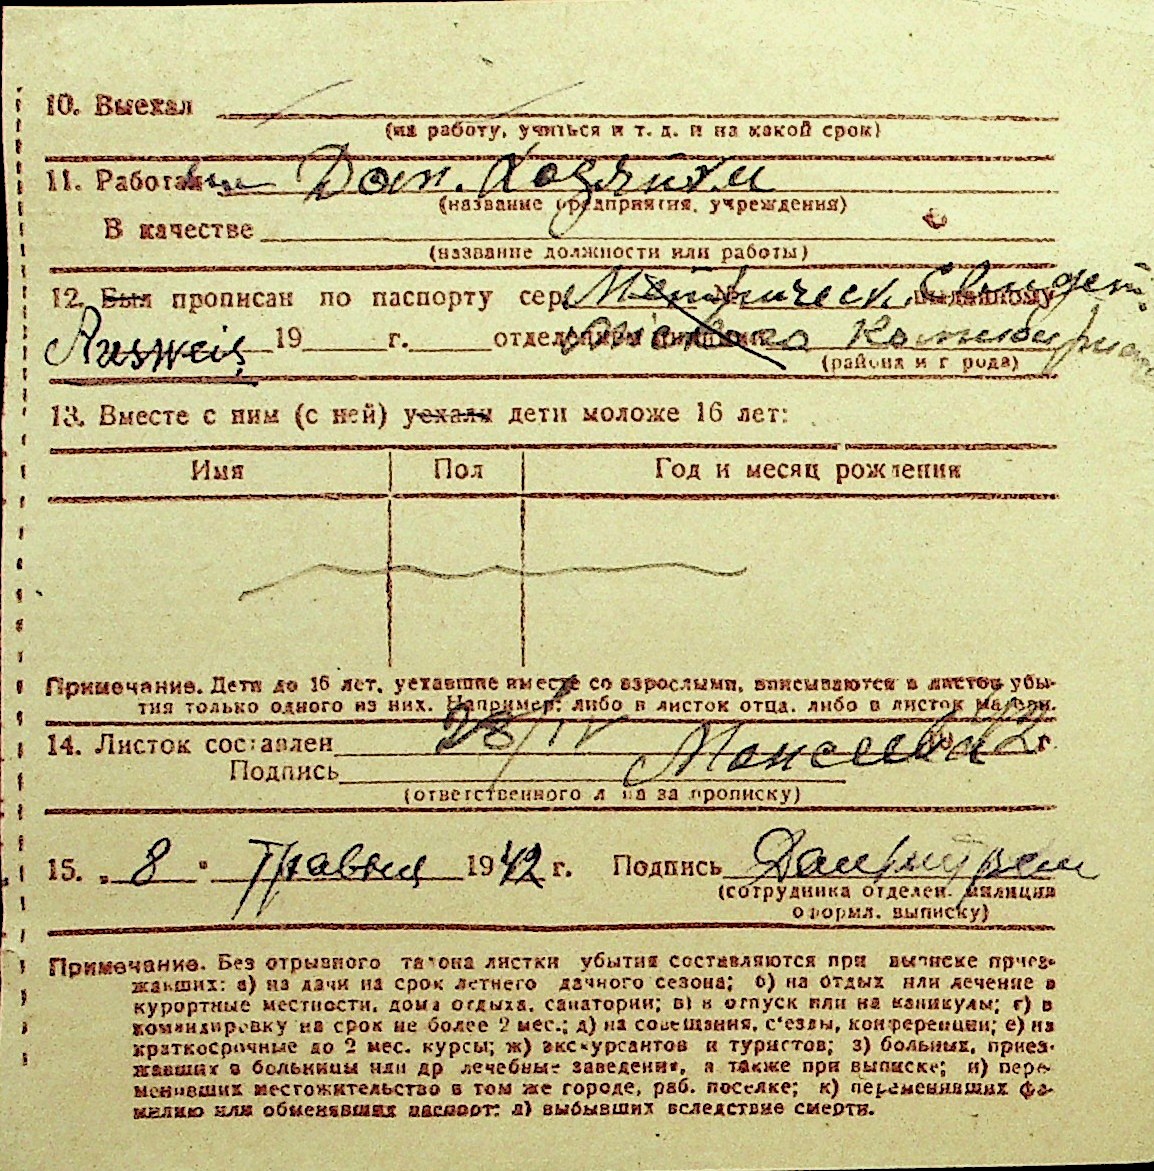 10. Выехал
(на работу, учиться и т. д. и на какой срок)
11. Работал Дом. Хозяйки
(название предприятия, учреждения)
В качестве
(название должности или работы)
12. Был прописан по паспорту сер. Метрическ. Свидет. выданному
Ausweis 19 г. отделением милиции
(района и г рода)
13. Вместе с ним (с ней) уехали дети моложе 16 лет:
Имя Пол Год и месяц рождения
Примечание. Дети до 16 лет, уехавшие вместе со взрослыми, вписываются в листок убы-
тия только одного из них. Например: либо в листок отца, либо в листок матери.
14. Листок составлен 28/IV 1942 г.
Подпись Моисеева
(ответственного л ца за прописку)
15. „ 8 " Травня 1942 г. Подпись
(сотрудника отделен. милиции
оформл. выписку)
Примечание. Без отрывного талона листки убытия составляются при выписке приез-
жавших: а) на дачи на срок летнего дачного сезона; б) на отдых или лечение в
курортные местности, дома отдыха, санатории; в) в отпуск или на каникулы; г) в
командировку на срок не более 2 мес.; д) на совещания, с'езды, конференции; е) на
краткосрочные до 2 мес. курсы; ж) экскурсантов и туристов; з) больных, приез-
жавших в больницы или др лечебные заведения, а также при выписке; и) пере-
менивших местожительство в том же городе, раб. поселке; к) переменивших фа-
милию или обменявших паспорт; л) выбывших вследствие смерти.